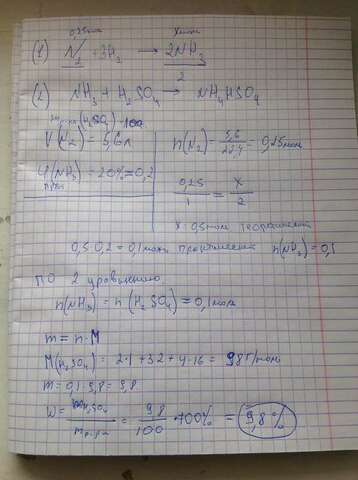 0,25моль х моль
(1) N₂ + 3H₂ → 2NH₃
2
(2) NH₃ + H₂SO₄ → NH₄HSO₄
(H₂SO₄) = 100
V(N₂) = 5,6л n(N₂) = 5,6/22,4 = 0,25моль
(NH₃) = 20% = 0,2
0,25/1 = x/2
x = 0,5моль теоретический
0,5·0,2 = 0,1моль практический n(NH₃) = 0,1
по 2 уравнению
n(NH₃) = n(H₂SO₄) = 0,1моль
m = n·M
M(H₂SO₄) = 2·1 + 32 + 4·16 = 98г/моль
m = 0,1·9,8 = 9,8
W = mH₂SO₄/mр-ра = 9,8/100 · 100% = 9,8%